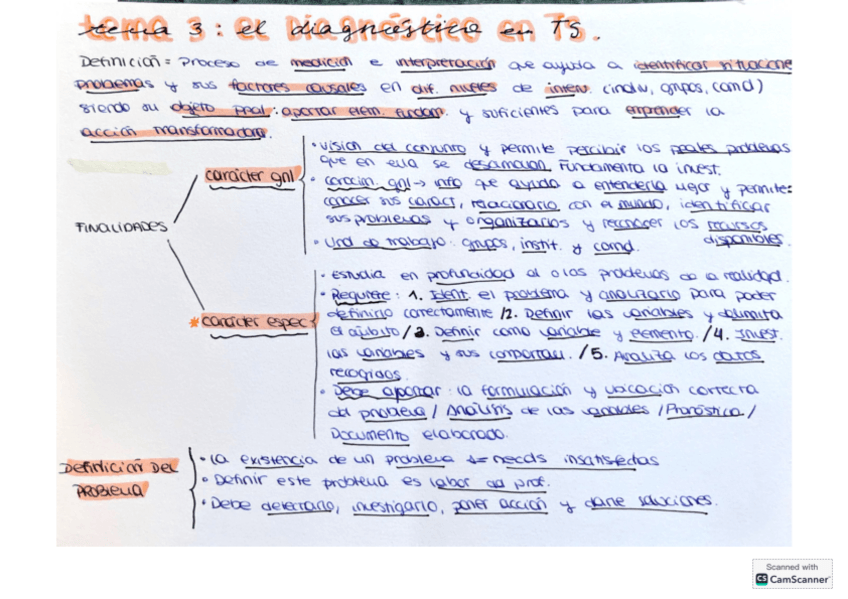 tema 3: el diagnóstico en TS.
Definición = Proceso de medición e interpretación que ayuda a identificar situacione
problemas y sus factores causales en dif. niveles de interv. (indiv, grupos, comd)
siendo su objeto ppal: aportar elem. fundam. y suficientes para emprender la
acción transformadora.
FINALIDADES
carácter gnl
· visión del conjunto y permite percibir los reales problemas
que en ella se desarrollan. Fundamenta la invest.
· conocim. gnl → info que ayuda a entenderla mejor y permite:
conocer sus caract, relacionarlo con el mundo, identificar
sus problemas y organizarlos y reconocer los recursos
disponibles.
· Und de trabajo: grupos, instit. y comd.
* carácter especf
· Estudia en profundidad al o los problemas de la realidad.
· Requiere: 1. Ident. el problema y analizarlo para poder
definirlo correctamente /2. Definir las variables y delimita
el ámbito /3. Definir como variable y elemento. /4. Invest.
las variables y sus comportam. /5. Analiza los datos
recogidos.
· Debe aportar: la formulación y ubicación correcta
del problema / Análisis de las variables / Pronóstico /
Documento elaborado.
DEFINICIÓN DEL
PROBLEMA
· La existencia de un problema = necds insatisfectas
· Definir este problema es labor del prof.
· Debe detectarlo, investigarlo, poner acción y darle soluciones.
Scanned with
CS CamScanner